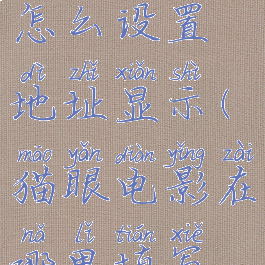 怎么设置
dì zhǐ xiǎn shì
地址显示(
māo yǎn diàn yǐng zài
猫眼电影在
nǎ lǐ tián xiě
哪里填写